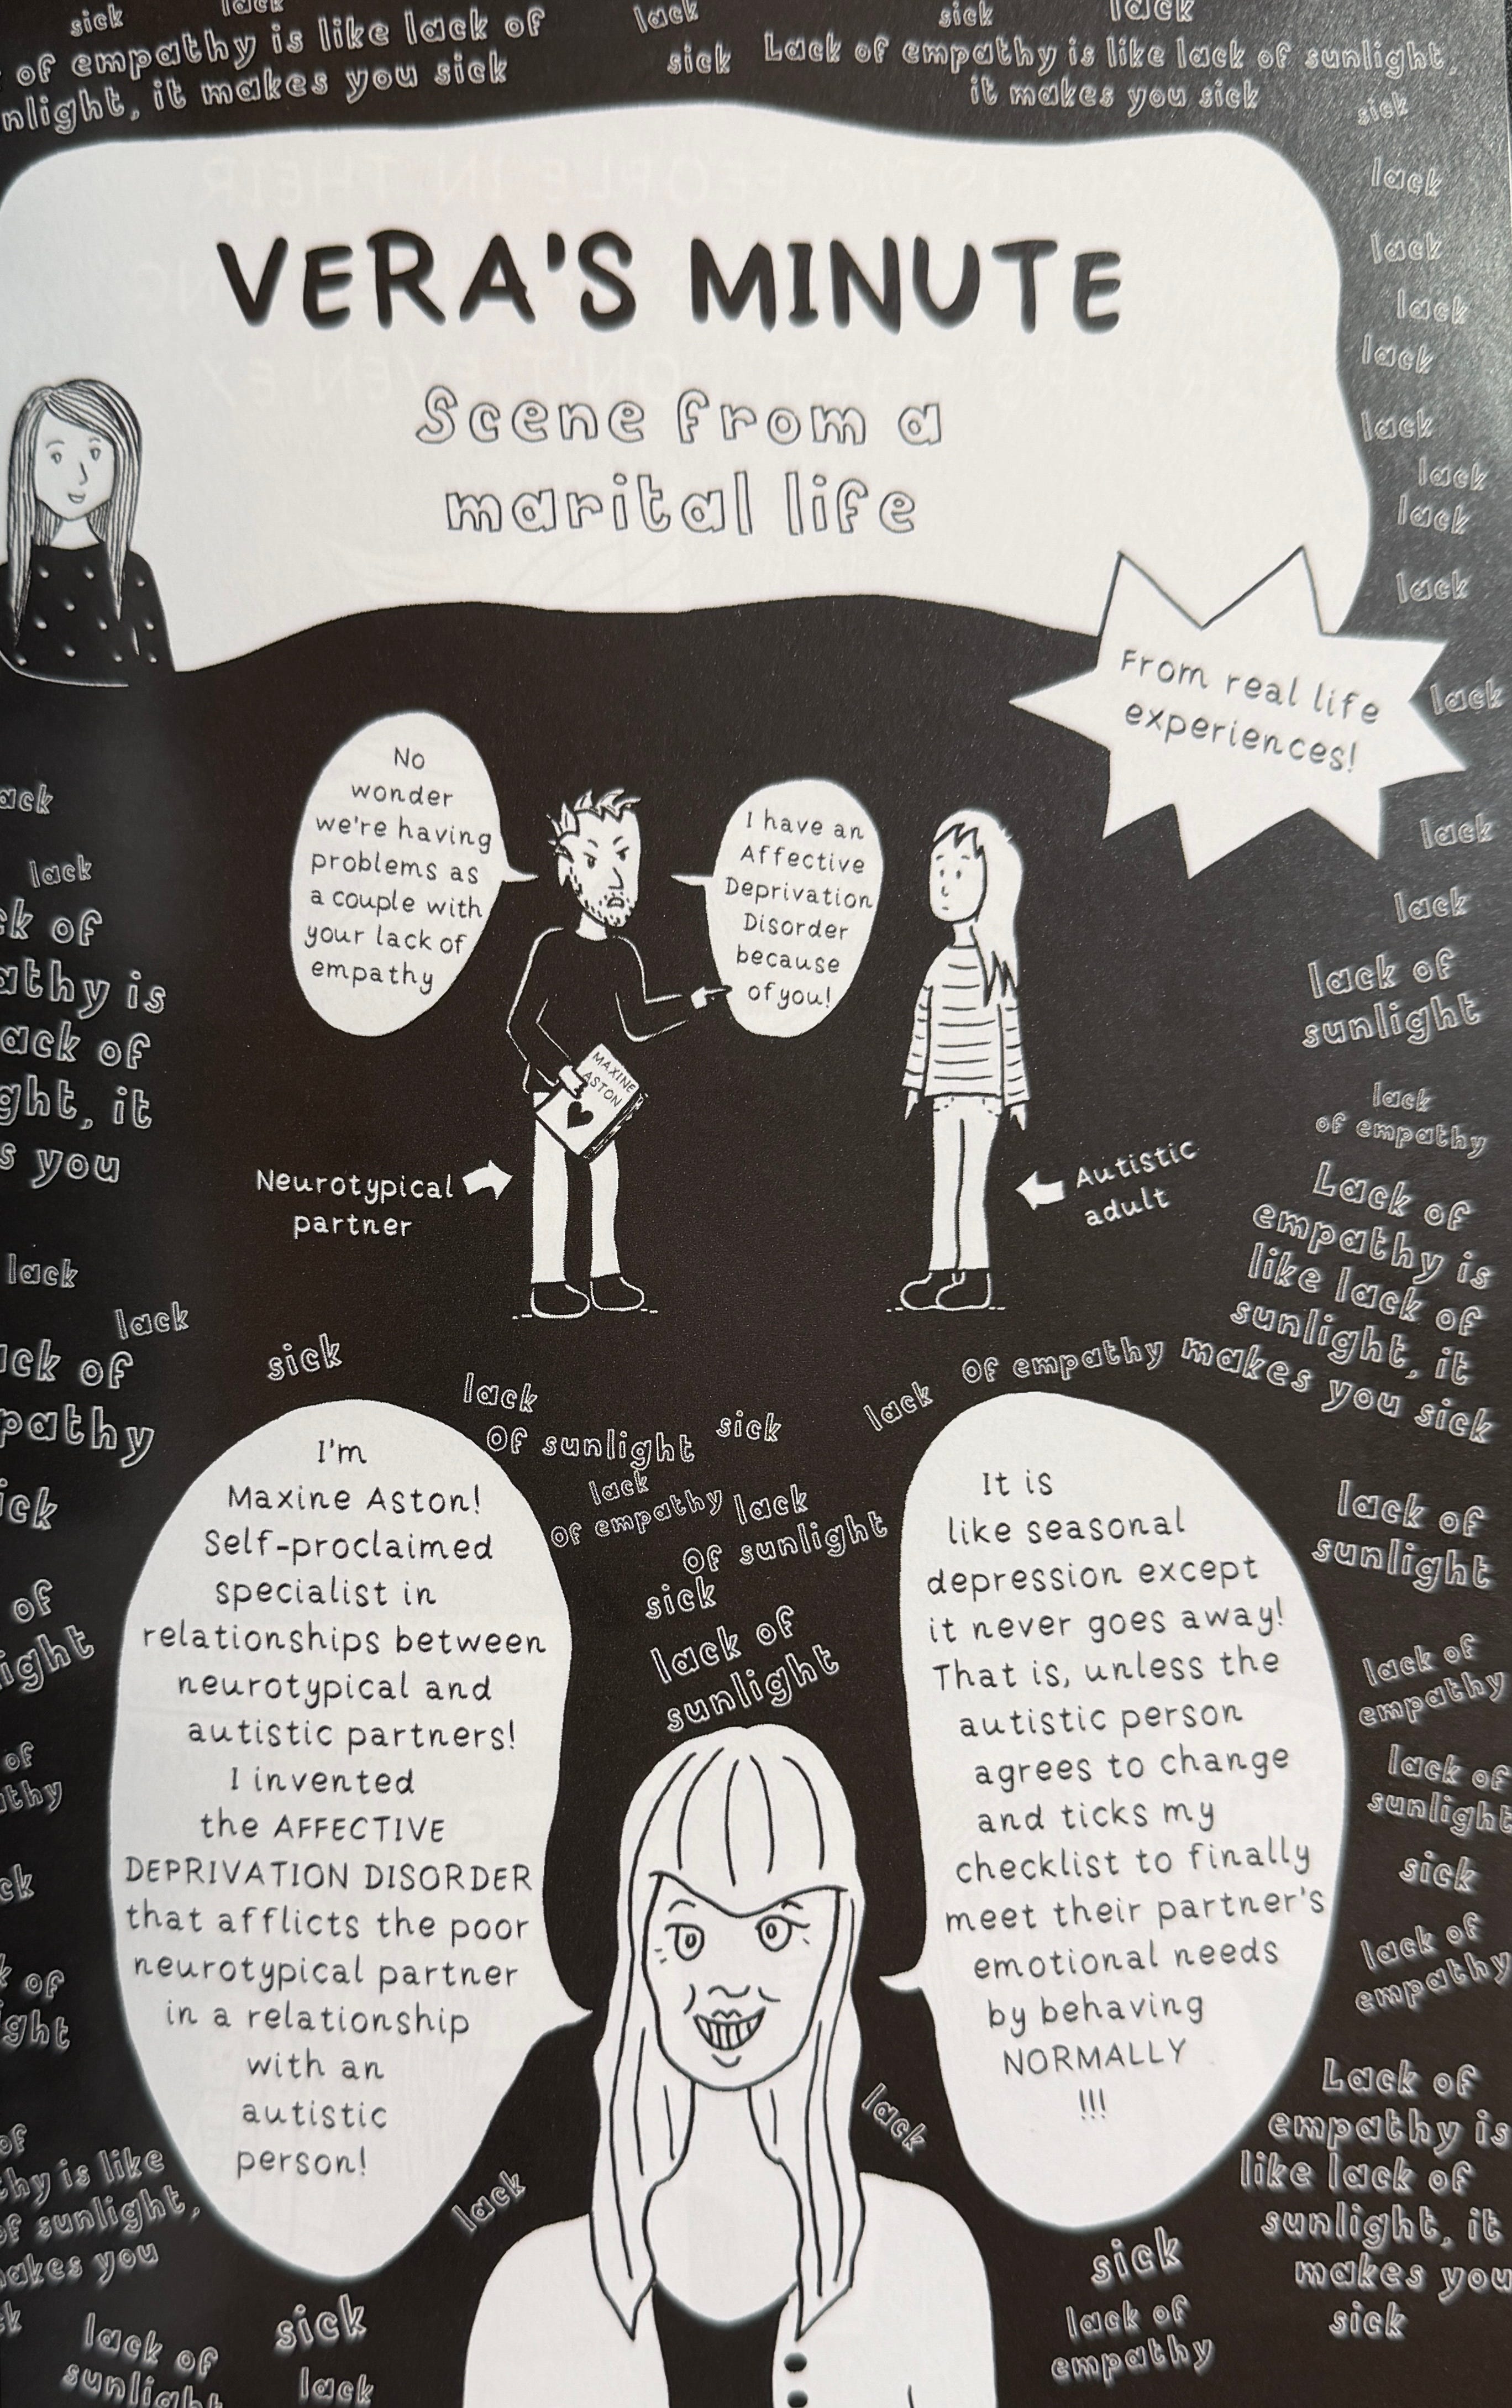 sick
lack
of empathy is like lack of
nlight, it makes you sick
lack
sick
sick
lack
Lack of empathy is like lack of sunlight,
it makes you sick
sick
lack
lack
lack
lack
lack
lack
lack
lack
VERA'S MINUTE
Scene from a
marital life
From real life
experiences!
lack
lack
lack
lack of
sunlight
lack
of empathy
Lack of
empathy is
like lack of
sunlight, it
makes you sick
No
wonder
we're having
problems as
a couple with
your lack of
empathy
I have an
Affective
Deprivation
Disorder
because
of you!
MAXINE
ASTON
Neurotypical
partner
Autistic
adult
ack
lack
ck of
athy is
ack of
ght, it
s you
lack
lack
ick of
pathy
ick
of
ight
of
thy
ck
k of
ght
of
thy is like
of sunlight,
akes you
k
sick
lack
of sunlight
sick
lack
of empathy
lack
of empathy
lack
of sunlight
sick
lack of
sunlight
I'm
Maxine Aston!
Self-proclaimed
specialist in
relationships between
neurotypical and
autistic partners!
I invented
the AFFECTIVE
DEPRIVATION DISORDER
that afflicts the poor
neurotypical partner
in a relationship
with an
autistic
person!
It is
like seasonal
depression except
it never goes away!
That is, unless the
autistic person
agrees to change
and ticks my
checklist to finally
meet their partner's
emotional needs
by behaving
NORMALLY
!!!
lack of
sunlight
lack of
empathy
lack of
sunlight
sick
lack of
empathy
Lack of
empathy is
like lack of
sunlight, it
makes you
sick
lack
lack
sick
lack of
empathy
lack of
sunlight
sick
lack